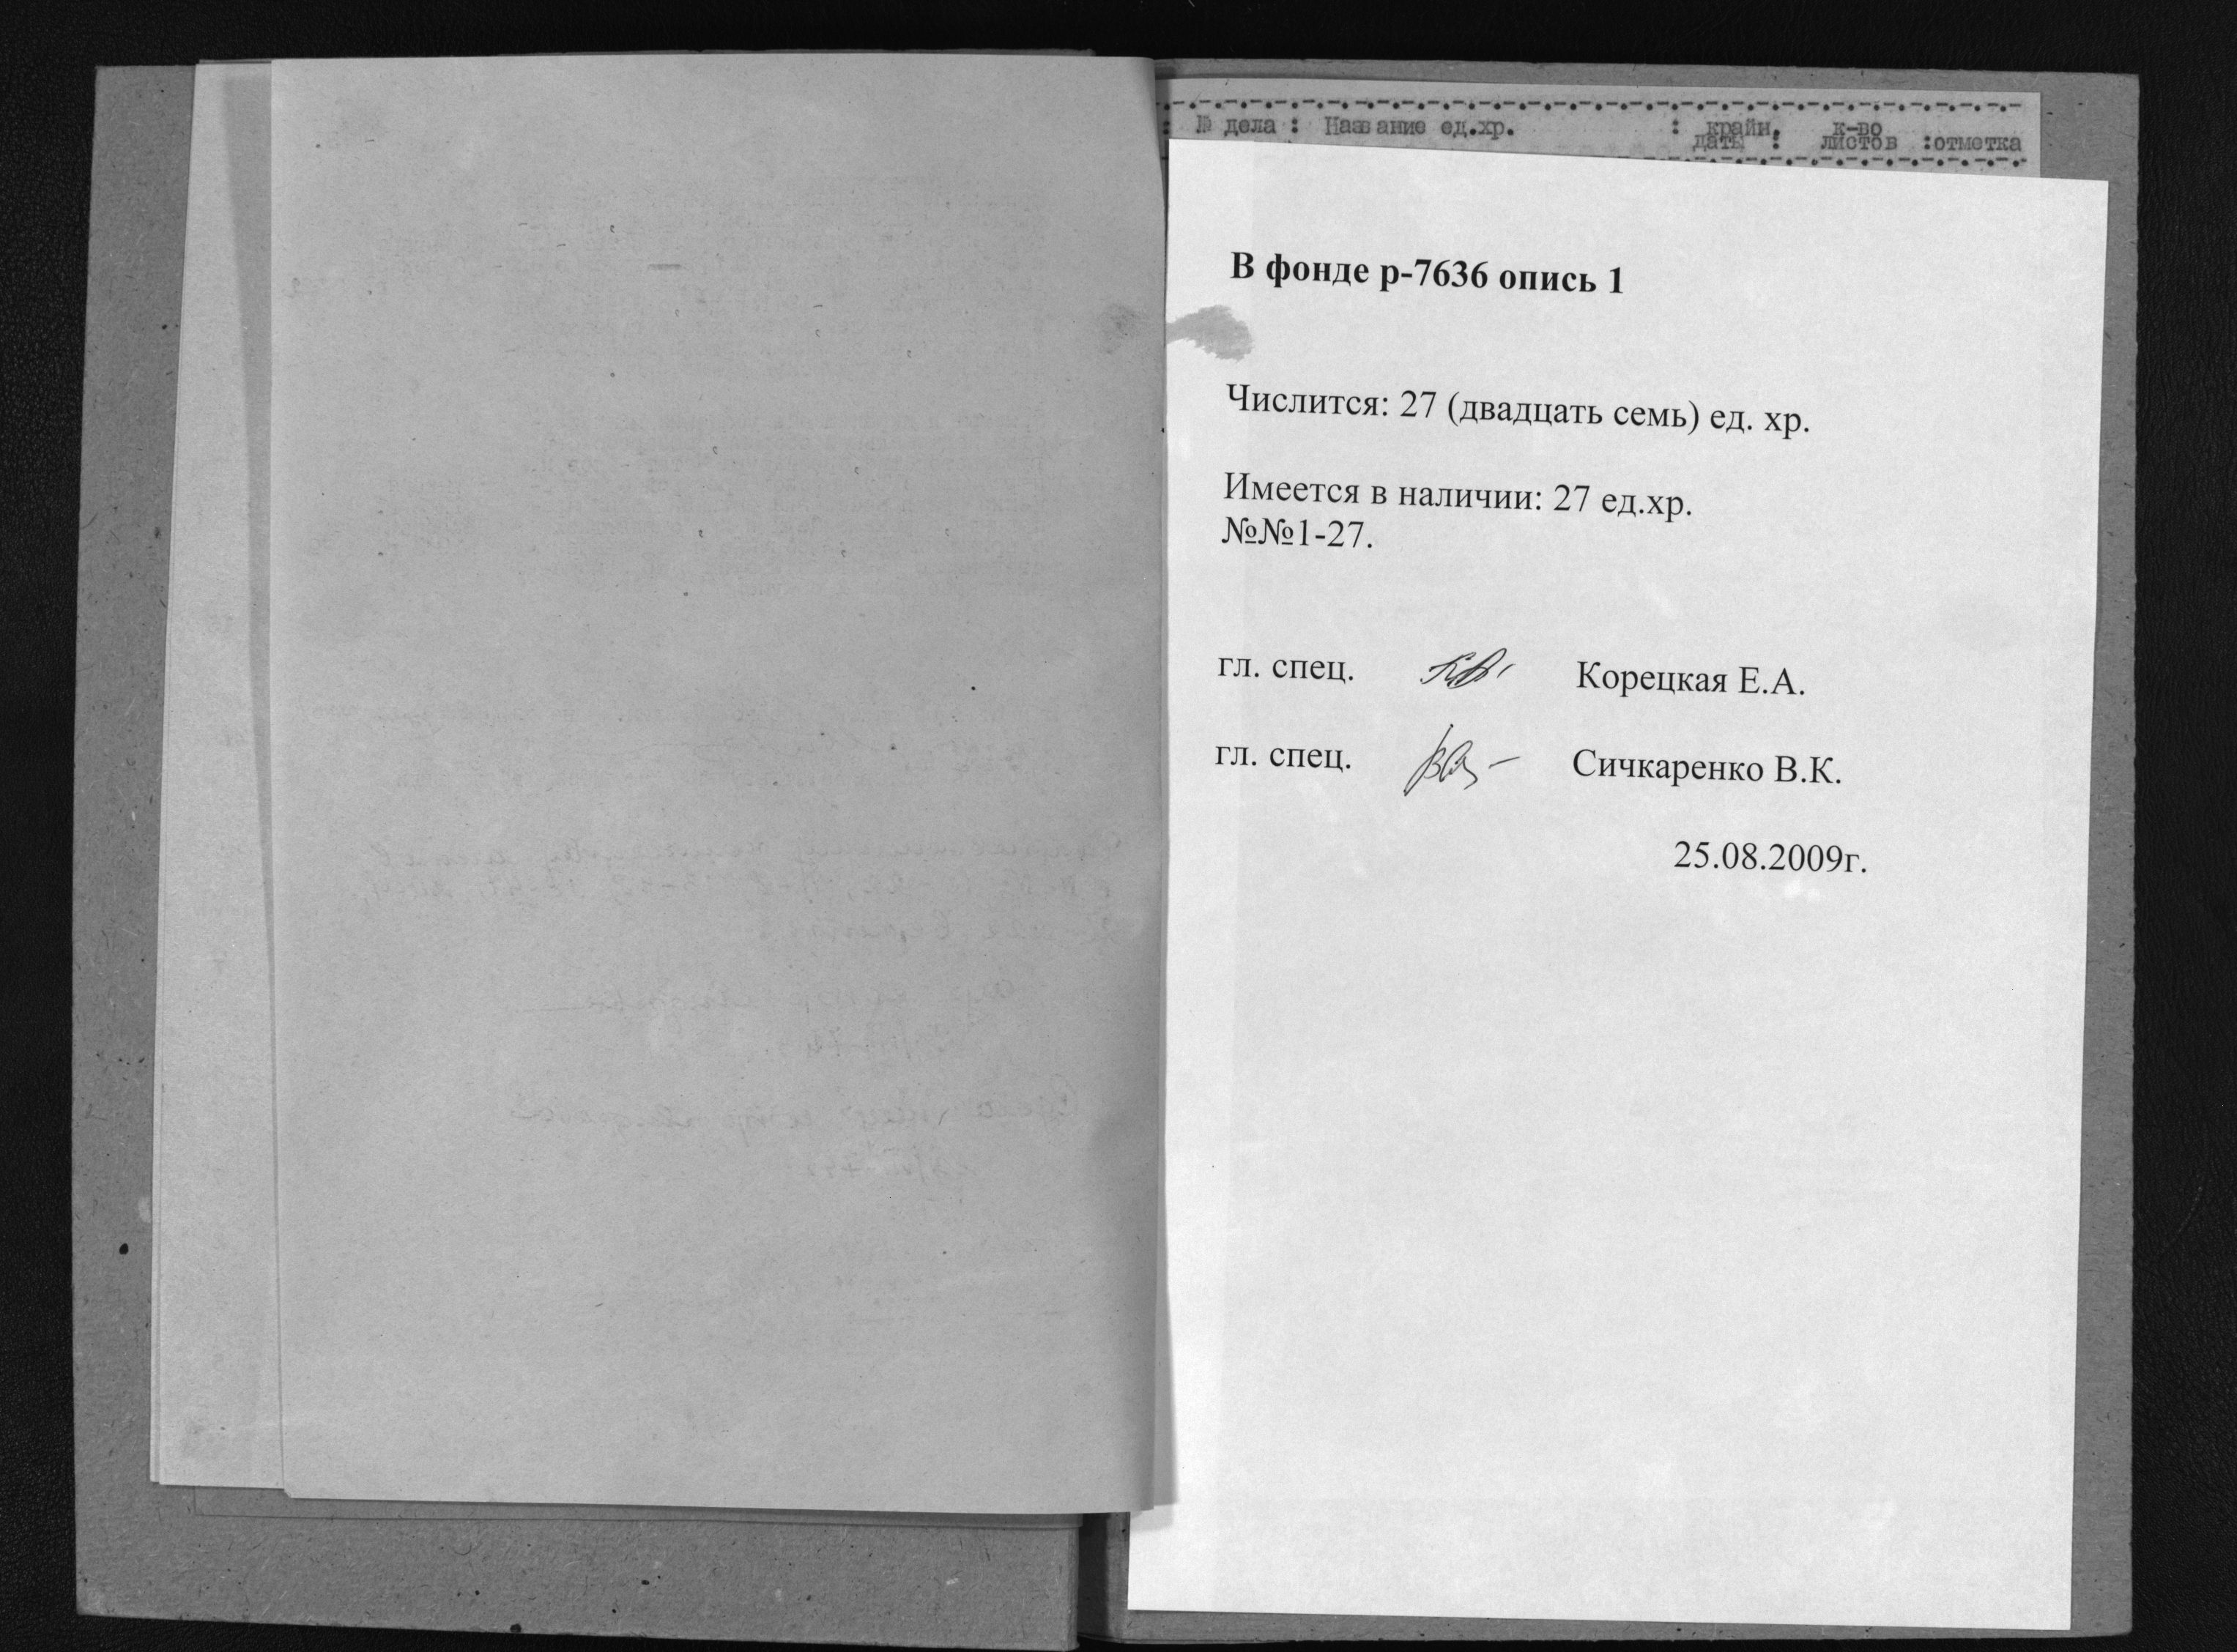 : № дела : Название ед.хр. : крайн. к-во
даты : листов :отметка
В фонде р-7636 опись 1
Числится: 27 (двадцать семь) ед. хр.
Имеется в наличии: 27 ед.хр.
№№1-27.
гл. спец. Корецкая Е.А.
гл. спец. Сичкаренко В.К.
25.08.2009г.